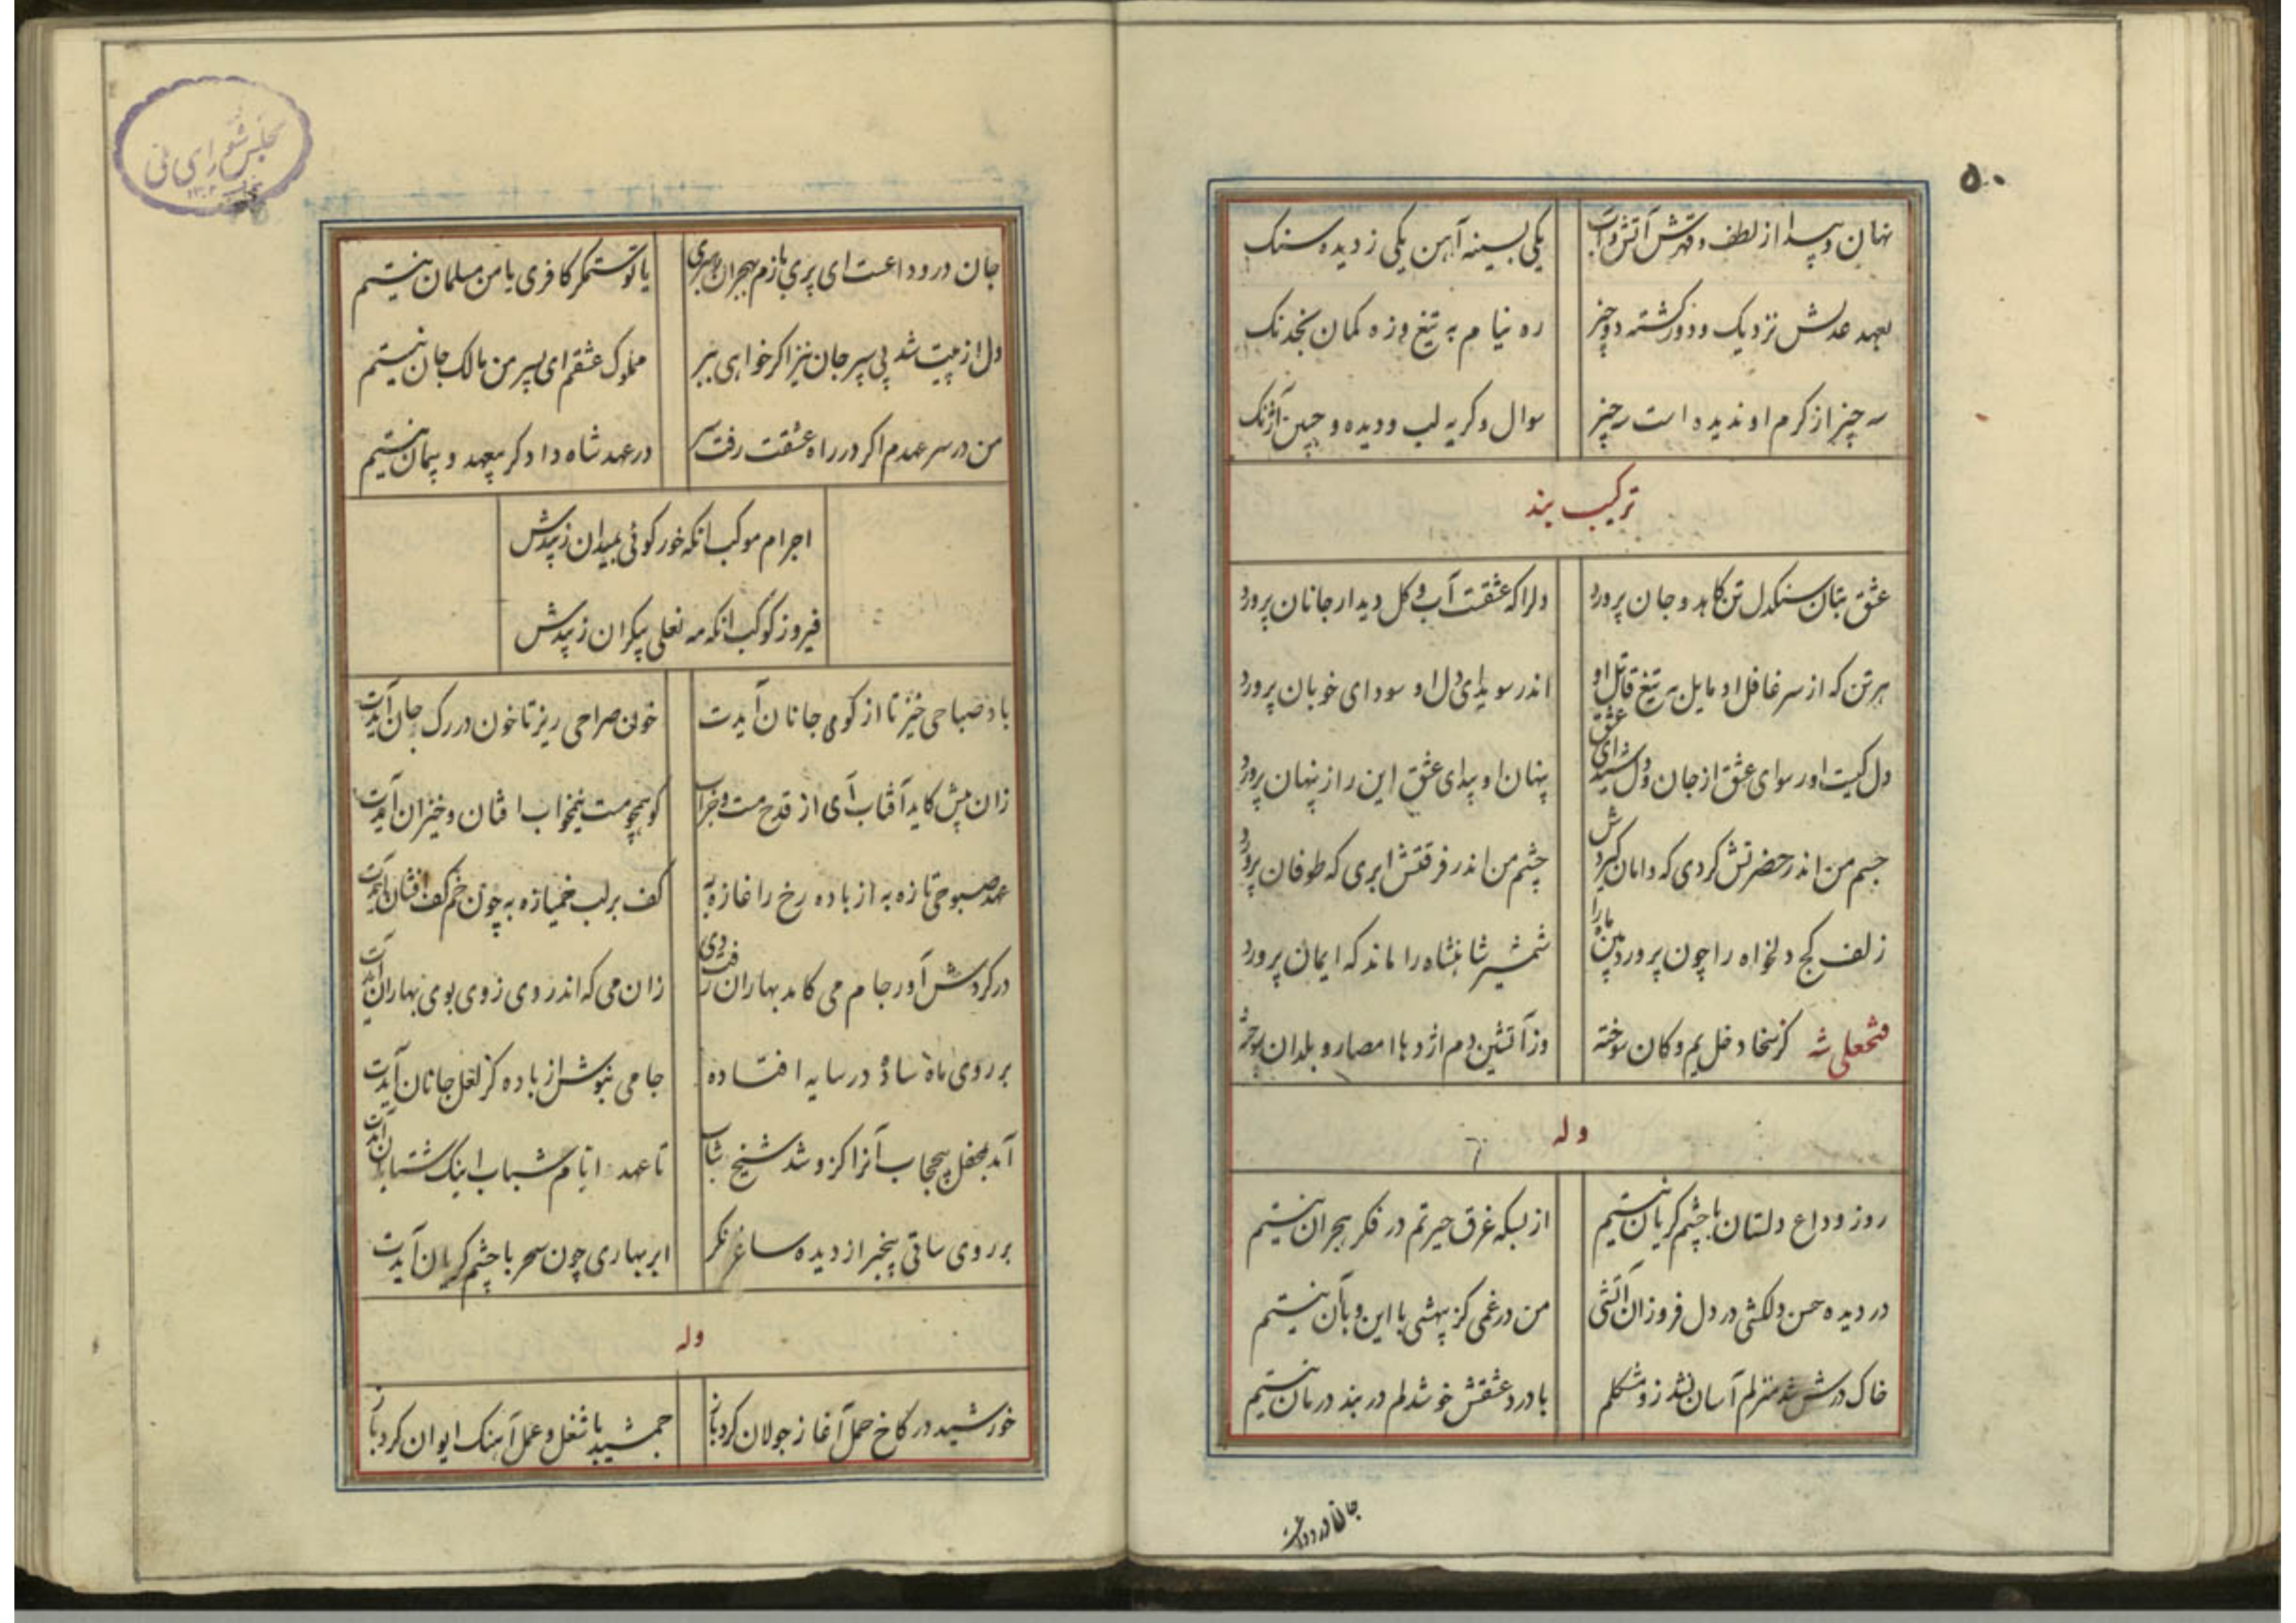 ۵۰
نهان و پیدا از لطف و قهرش آتش و آب
یکی بسینه آهن یکی ز دیده سنک
بعهد عدلش نزدیک و دور کشته دو چیز
ره نیام به تیغ و زه کمان بخدنک
سه چیز از کرم او ندیده است سه چیز
سوال و کریه لب و دیده و جبین آژنک
ترکیب بند
عشق بتان سنکدل تن کاهد و جان پرورد
دلرا که عشقت آب و کل دیدار جانان پرورد
هر تن که از سر غافل او مایل به تیغ قاتل او
اندر سویدای دل او سودای خوبان پرورد
دل کیست او رسوای عشق از جان و دل شیدای عشق
پنهان او پیدای عشق این راز پنهان پرورد
جسم من اندر حضرتش کردی که دامان کیردش
چشم من اندر فرقتش ابری که طوفان پرورد
زلف کج دلخواه را چون پرورد بین ماه را
شمشیر شاهنشاه را ماند که ایمان پرورد
فتحعلی شه کز سخا دخل یم و کان سوخته
وز آتشین دم اژدها امصار و بلدان سوخته
وله
روز وداع دلستان با چشم کریان نیستم
از بسکه غرق حیرتم در فکر هجران نیستم
در دیده حسن دلکشی در دل فروزان آتشی
من در غمی کز بیهشی با این و با آن نیستم
خاک درش شد منزلم آسان نشد زو مشکلم
با درد عشقش خوشدلم در بند درمان نیستم
جان در وداعت
مجلس شورای ملی
جان در وداعت ای پری بازم بهجران میبری
یا تو ستمکر کافری یا من مسلمان نیستم
دل از پیت شد پی سپر جان نیز اکر خواهی ببر
مملوک عشقم ای پسر من مالک جان نیستم
من در سر عهدم اکر در راه عشقت رفت سر
در عهد شاه دادکر بیعهد و پیمان نیستم
اجرام موکب انکه خور کوئی بمیدان زیبدش
فیروز کوکب انکه مه نعلی بیکران زیبدش
باد صباحی خیز تا از کوی جانان آیدت
خون صراحی ریز تا خون در رک جان آیدت
زان پیش کاید آفتاب آی از قدح مست و خراب
کو همچو مست نیمخواب افتان و خیزان آیدت
عهد صبوحی تازه به از باده رخ را غازه به
کف بر لب خمیازه به چون خم کف افشان آیدت
در کردش آور جام می کامد بهاران رفت دی
زان می که اندر وی ز وی بوی بهاران آیدت
بر روی ماه ساده در سایه افتاده
جامی بنوش از باده کز لعل جانان آیدت
آمد بمحفل بیحجاب آنرا کزو شد شیخ شاب
تا عهد ایام شباب اینک شتابان آیدت
بر روی ساقی بیخبر از دیده ساغر نکر
ابر بهاری چون سحر با چشم کریان آیدت
وله
خورشید در کاخ حمل آغاز جولان کرد باز
جمشید با شغل و عمل آهنک ایوان کرد باز